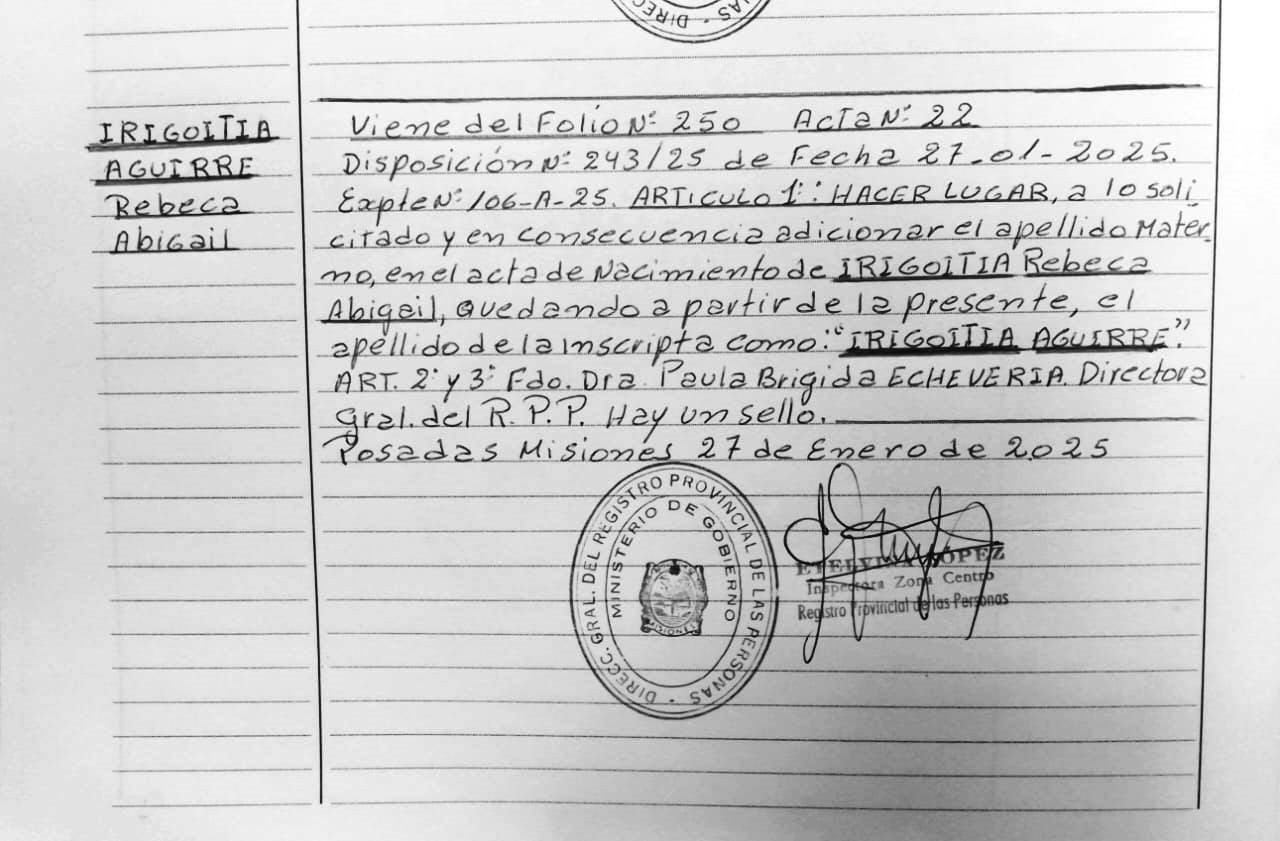 DIRECC. NAS
IRIGOITIA
AGUIRRE
Rebeca
Abigail
Viene del Folio N° 250 Acta N° 22
Disposición N° 243/25 de Fecha 27-01-2025.
Expte N° 106-A-25. ARTICULO 1°: HACER LUGAR, a lo soli
citado y en consecuencia adicionar el apellido Mater_
no, en el acta de Nacimiento de IRIGOITIA Rebeca
Abigail, quedando a partir de la presente, el
apellido de la inscripta como: "IRIGOITIA AGUIRRE".
ART. 2° y 3° Fdo. Dra. Paula Brigida ECHEVERIA. Directora
Gral. del R.P.P. Hay un sello.
Posadas Misiones 27 de Enero de 2025
DIRECC. GRAL. DEL REGISTRO PROVINCIAL DE LAS PERSONAS
MINISTERIO DE GOBIERNO
MISIONES
LÓPEZ
Inspectora Zona Centro
Registro Provincial de las Personas